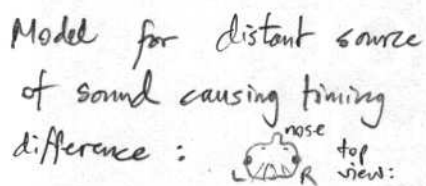 Model for distant source
of sound causing timing
difference : nose
L R top
view: